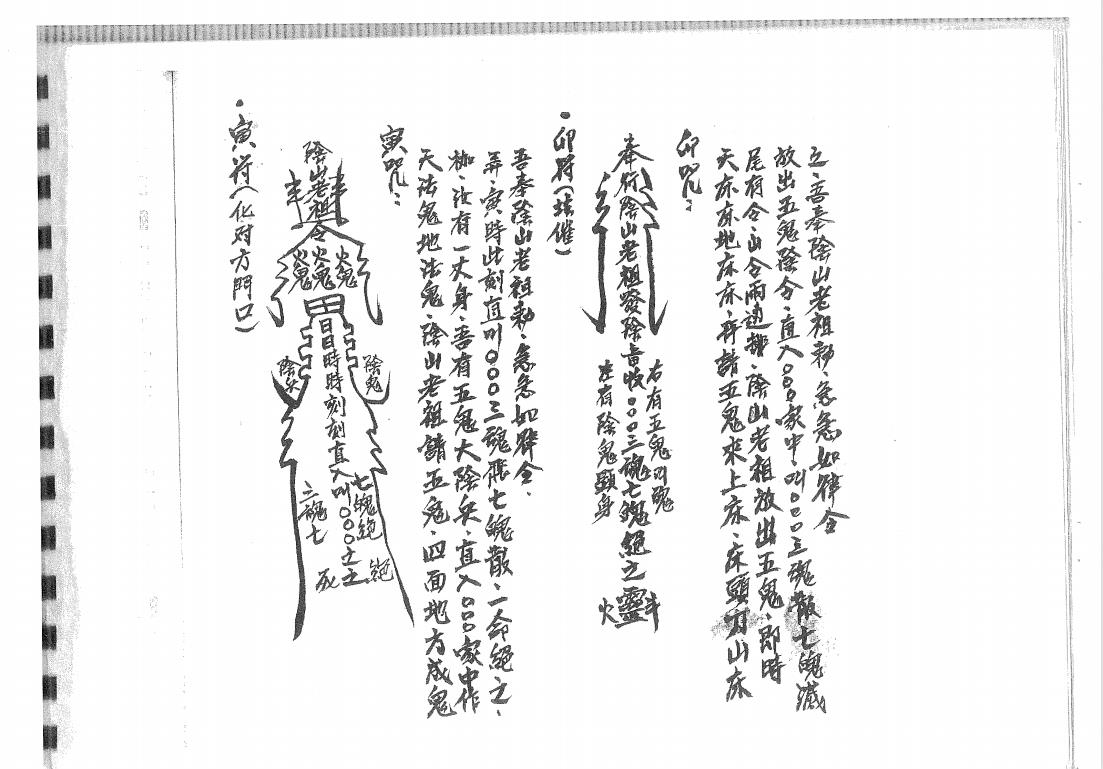 立、吾奉陰山老祖勅、急急如律令
放出五鬼陰令、直入○○○家中、叫○○○三魂散七魄滅
尾有令、山令兩邊排、陰山老祖放出五鬼、即時
天床床地床床、再請五鬼來上床、床頭山床
卯咒：
右有五鬼叫魂
奉行陰山老祖發陰兵收○○○三魂七魄絕之靈
左有陰鬼顯身
火
．卯符（催）
吾奉陰山老祖勅、急急如律令、
弄、寅時此刻直叫○○○三魂飛七魄散、一命絕之、
枷、汝有一丈身、吾有五鬼大陰兵、直入○○○家中作
天法鬼地法鬼、陰山老祖請五鬼、四面地方成鬼
寅咒：
陰山老祖令
火鬼
火鬼
火鬼
陰鬼
陰兵
日日時時刻刻直入叫○○○之
七魄絕
三魂七
絕
死
．寅符（化对方門口）